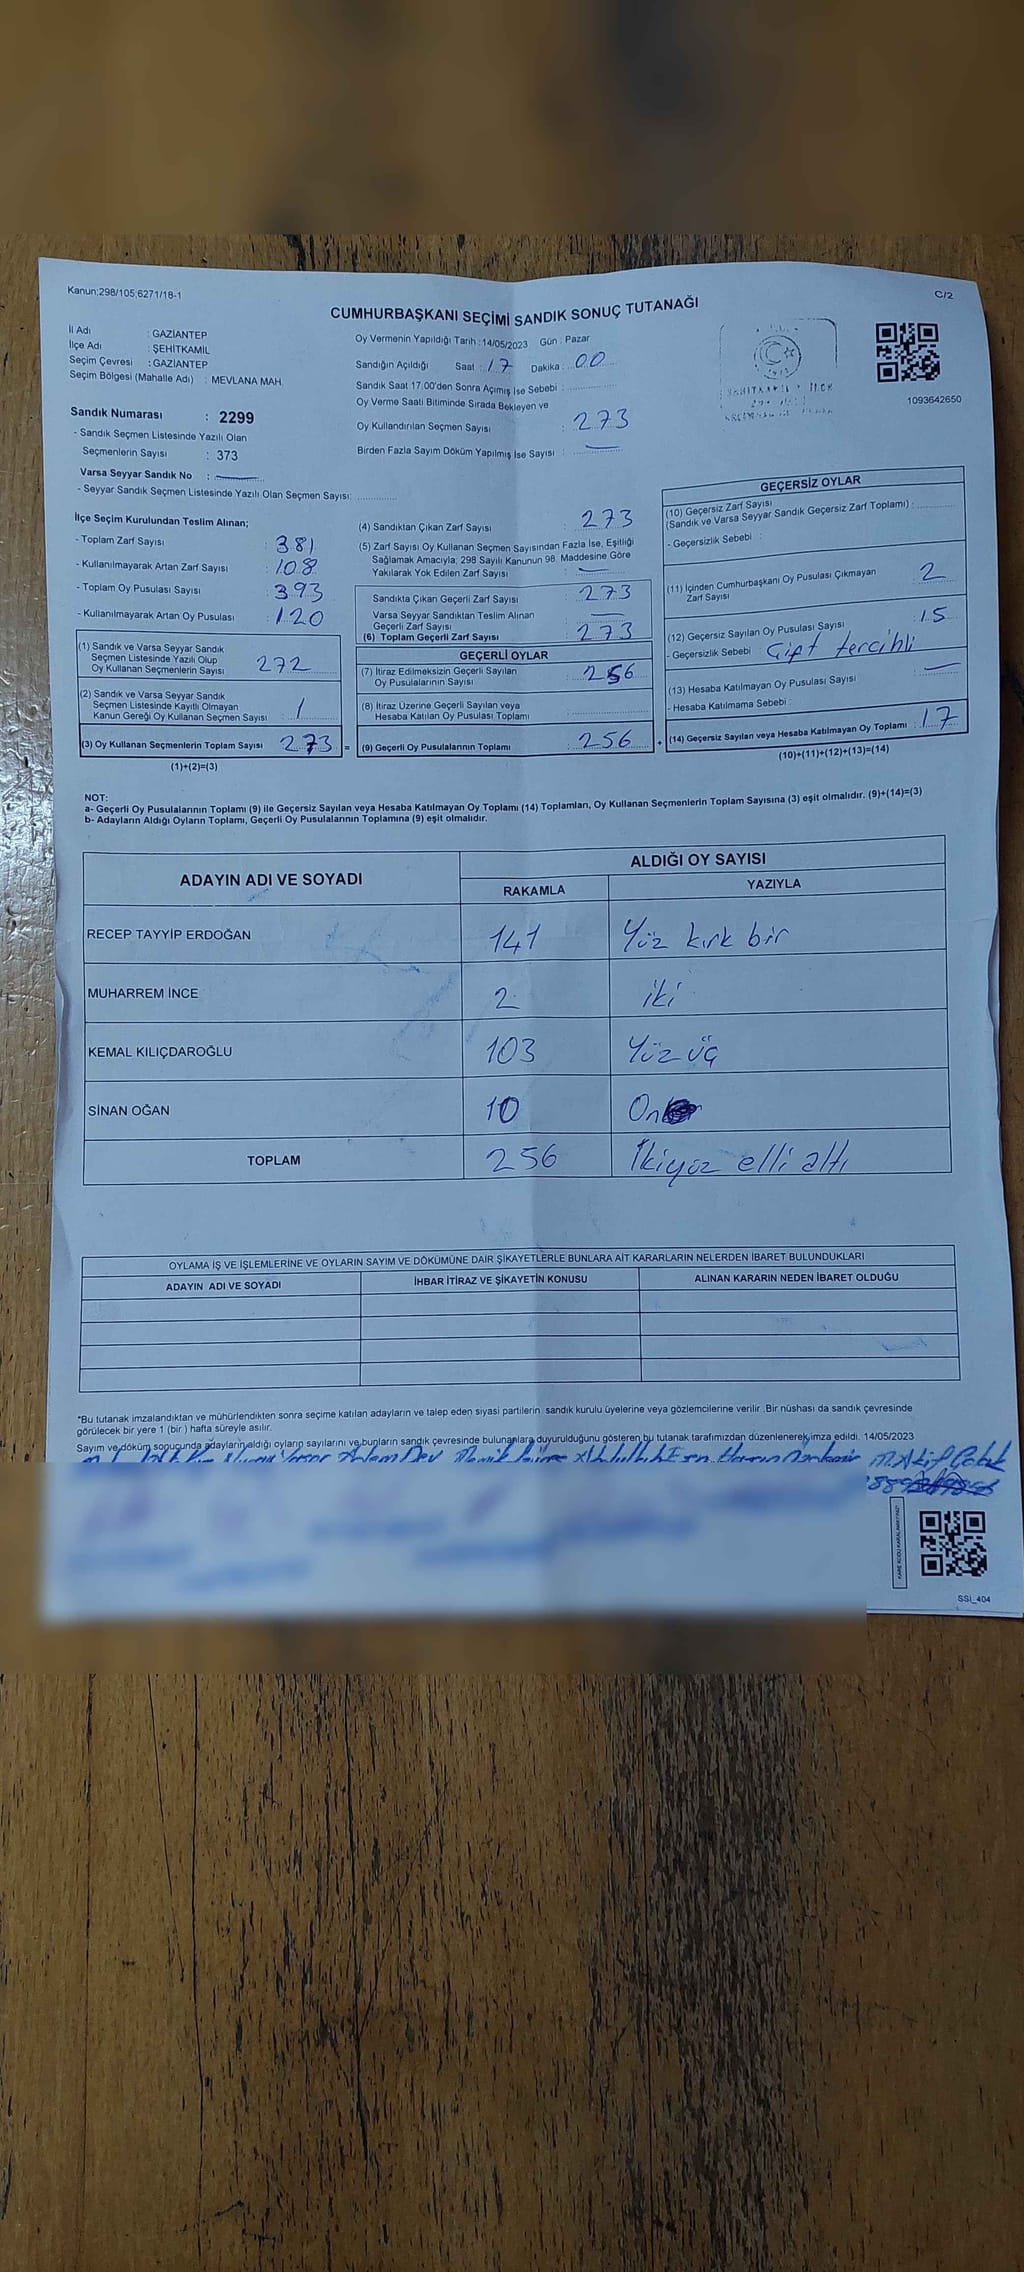 Kanun;298/105;6271/18-1
C/2
CUMHURBAŞKANI SEÇİMİ SANDIK SONUÇ TUTANAĞI
İl Adı : GAZİANTEP
İlçe Adı : ŞEHİTKAMİL
Seçim Çevresi : GAZİANTEP
Seçim Bölgesi (Mahalle Adı) : MEVLANA MAH.
Oy Vermenin Yapıldığı Tarih : 14/05/2023 Gün : Pazar
Sandığın Açıldığı Saat : 17 Dakika : 00
Sandık Saat 17.00'den Sonra Açımış İse Sebebi :
Oy Verme Saati Bitiminde Sırada Bekleyen ve
Oy Kullandırılan Seçmen Sayısı : 273
Birden Fazla Sayım Döküm Yapılmış İse Sayısı : —
1093642650
Sandık Numarası : 2299
- Sandık Seçmen Listesinde Yazılı Olan
Seçmenlerin Sayısı : 373
Varsa Seyyar Sandık No : —
- Seyyar Sandık Seçmen Listesinde Yazılı Olan Seçmen Sayısı:
İlçe Seçim Kurulundan Teslim Alınan;
- Toplam Zarf Sayısı : 381
- Kullanılmayarak Artan Zarf Sayısı : 108
- Toplam Oy Pusulası Sayısı : 393
- Kullanılmayarak Artan Oy Pusulası : 120
(1) Sandık ve Varsa Seyyar Sandık
Seçmen Listesinde Yazılı Olup
Oy Kullanan Seçmenlerin Sayısı : 272
(2) Sandık ve Varsa Seyyar Sandık
Seçmen Listesinde Kayıtlı Olmayan
Kanun Gereği Oy Kullanan Seçmen Sayısı : 1
(3) Oy Kullanan Seçmenlerin Toplam Sayısı : 273 =
(1)+(2)=(3)
(4) Sandıktan Çıkan Zarf Sayısı : 273
(5) Zarf Sayısı Oy Kullanan Seçmen Sayısından Fazla İse, Eşitliği
Sağlamak Amacıyla; 298 Sayılı Kanunun 98. Maddesine Göre
Yakılarak Yok Edilen Zarf Sayısı : —
Sandıkta Çıkan Geçerli Zarf Sayısı : 273
Varsa Seyyar Sandıktan Teslim Alınan
Geçerli Zarf Sayısı : —
(6) Toplam Geçerli Zarf Sayısı : 273
GEÇERLİ OYLAR
(7) İtiraz Edilmeksizin Geçerli Sayılan
Oy Pusulalarının Sayısı : 256
(8) İtiraz Üzerine Geçerli Sayılan veya
Hesaba Katılan Oy Pusulası Toplamı :
(9) Geçerli Oy Pusulalarının Toplamı : 256 +
GEÇERSİZ OYLAR
(10) Geçersiz Zarf Sayısı
(Sandık ve Varsa Seyyar Sandık Geçersiz Zarf Toplamı) :
- Geçersizlik Sebebi :
(11) İçinden Cumhurbaşkanı Oy Pusulası Çıkmayan
Zarf Sayısı : 2
(12) Geçersiz Sayılan Oy Pusulası Sayısı : 15
- Geçersizlik Sebebi : Çift tercihli
(13) Hesaba Katılmayan Oy Pusulası Sayısı : —
- Hesaba Katılmama Sebebi :
(14) Geçersiz Sayılan veya Hesaba Katılmayan Oy Toplamı : 17
(10)+(11)+(12)+(13)=(14)
NOT:
a- Geçerli Oy Pusulalarının Toplamı (9) ile Geçersiz Sayılan veya Hesaba Katılmayan Oy Toplamı (14) Toplamları, Oy Kullanan Seçmenlerin Toplam Sayısına (3) eşit olmalıdır. (9)+(14)=(3)
b- Adayların Aldığı Oyların Toplamı, Geçerli Oy Pusulalarının Toplamına (9) eşit olmalıdır.
ADAYIN ADI VE SOYADI ALDIĞI OY SAYISI
RAKAMLA YAZIYLA
RECEP TAYYİP ERDOĞAN 141 Yüz kırk bir
MUHARREM İNCE 2 iki
KEMAL KILIÇDAROĞLU 103 Yüz üç
SİNAN OĞAN 10 On
TOPLAM 256 İkiyüz elli altı
OYLAMA İŞ VE İŞLEMLERİNE VE OYLARIN SAYIM VE DÖKÜMÜNE DAİR ŞİKAYETLERLE BUNLARA AİT KARARLARIN NELERDEN İBARET BULUNDUKLARI
ADAYIN ADI VE SOYADI İHBAR İTİRAZ VE ŞİKAYETİN KONUSU ALINAN KARARIN NEDEN İBARET OLDUĞU
*Bu tutanak imzalandıktan ve mühürlendikten sonra seçime katılan adayların ve talep eden siyasi partilerin sandık kurulu üyelerine veya gözlemcilerine verilir. Bir nüshası da sandık çevresinde
görülecek bir yere 1 (bir) hafta süreyle asılır.
Sayım ve döküm sonucunda adayların aldığı oyların sayılarını ve bunların sandık çevresinde bulunanlara duyurulduğunu gösteren bu tutanak tarafımızdan düzenlenerek imza edildi. 14/05/2023
M.Akif Çabuk
SSİ_404